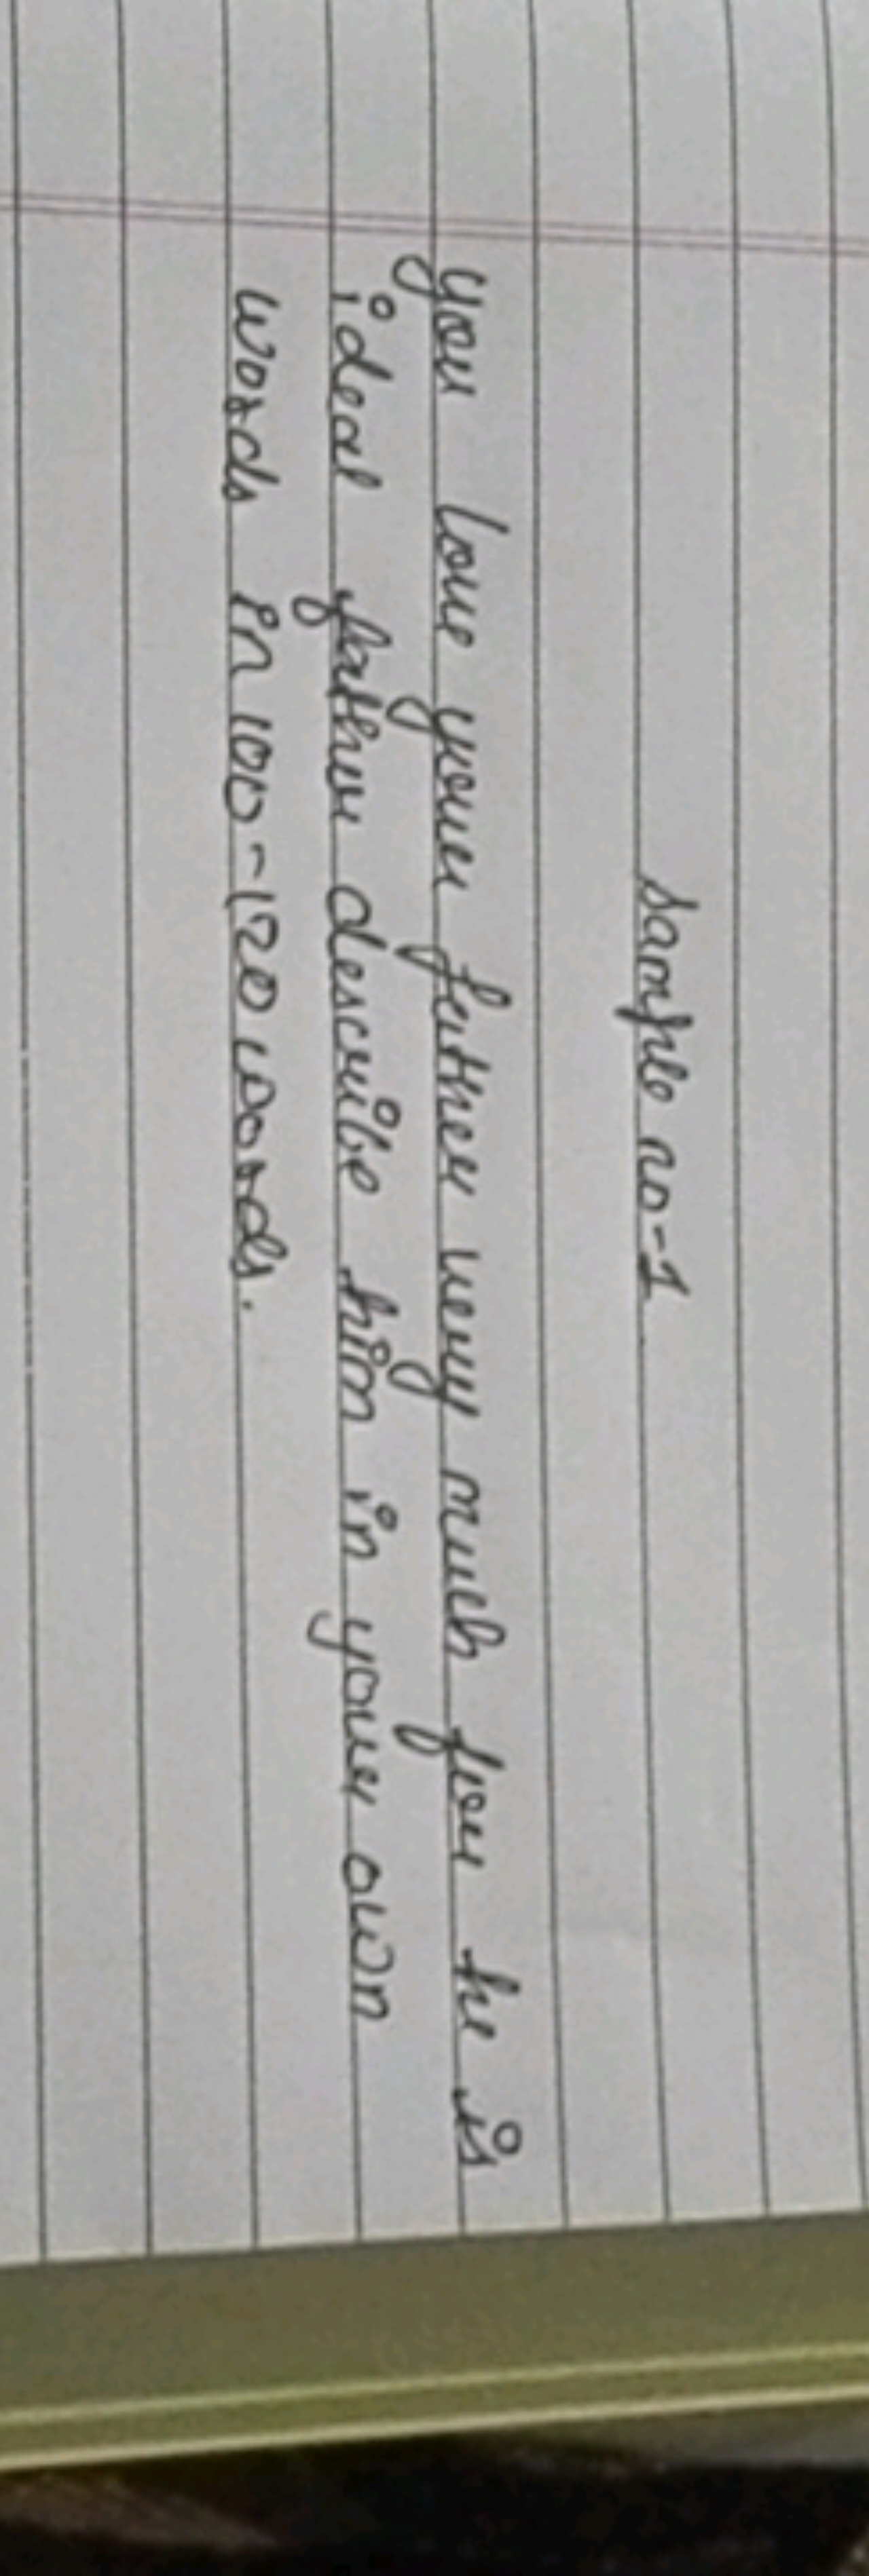 Sample no-1
you love your father very much for he is
ideal father describe him in your own
words in 100-120 words.